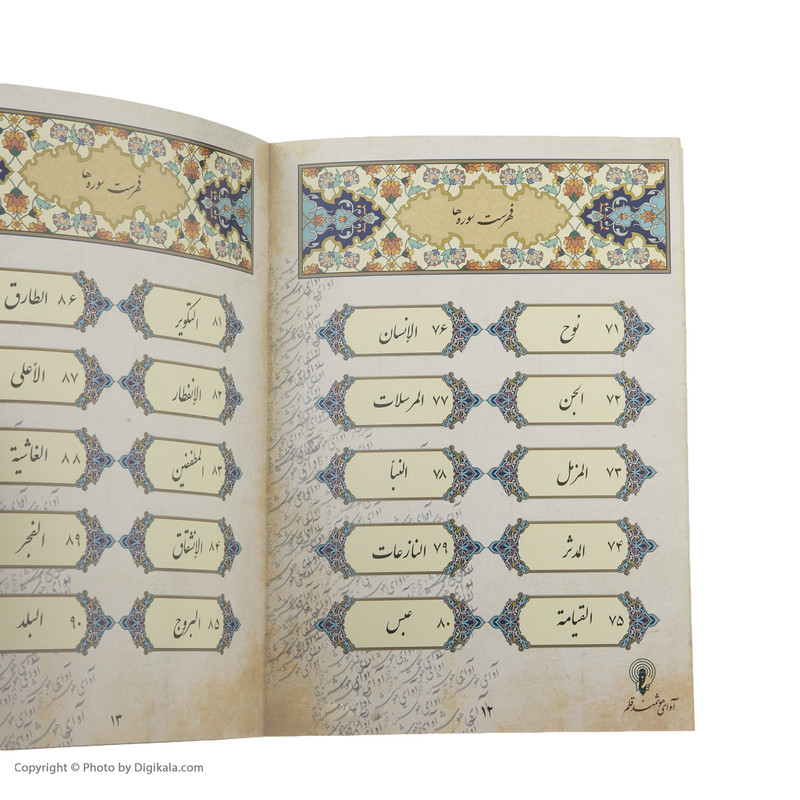 فهرست سوره‌ها
۷۱ نوح
۷۶ الإنسان
۷۲ الجن
۷۷ المرسلات
۷۳ المزمل
۷۸ النبأ
۷۴ المدثر
۷۹ النازعات
۷۵ القیامة
۸۰ عبس
آوای هوشمند قلم
۱۲
فهرست سوره‌ها
۸۱ التکویر
۸۶ الطارق
۸۲ الإنفطار
۸۷ الأعلی
۸۳ المطففین
۸۸ الغاشیة
۸۴ الإنشقاق
۸۹ الفجر
۸۵ البروج
۹۰ البلد
۱۳
Copyright © Photo by Digikala.com